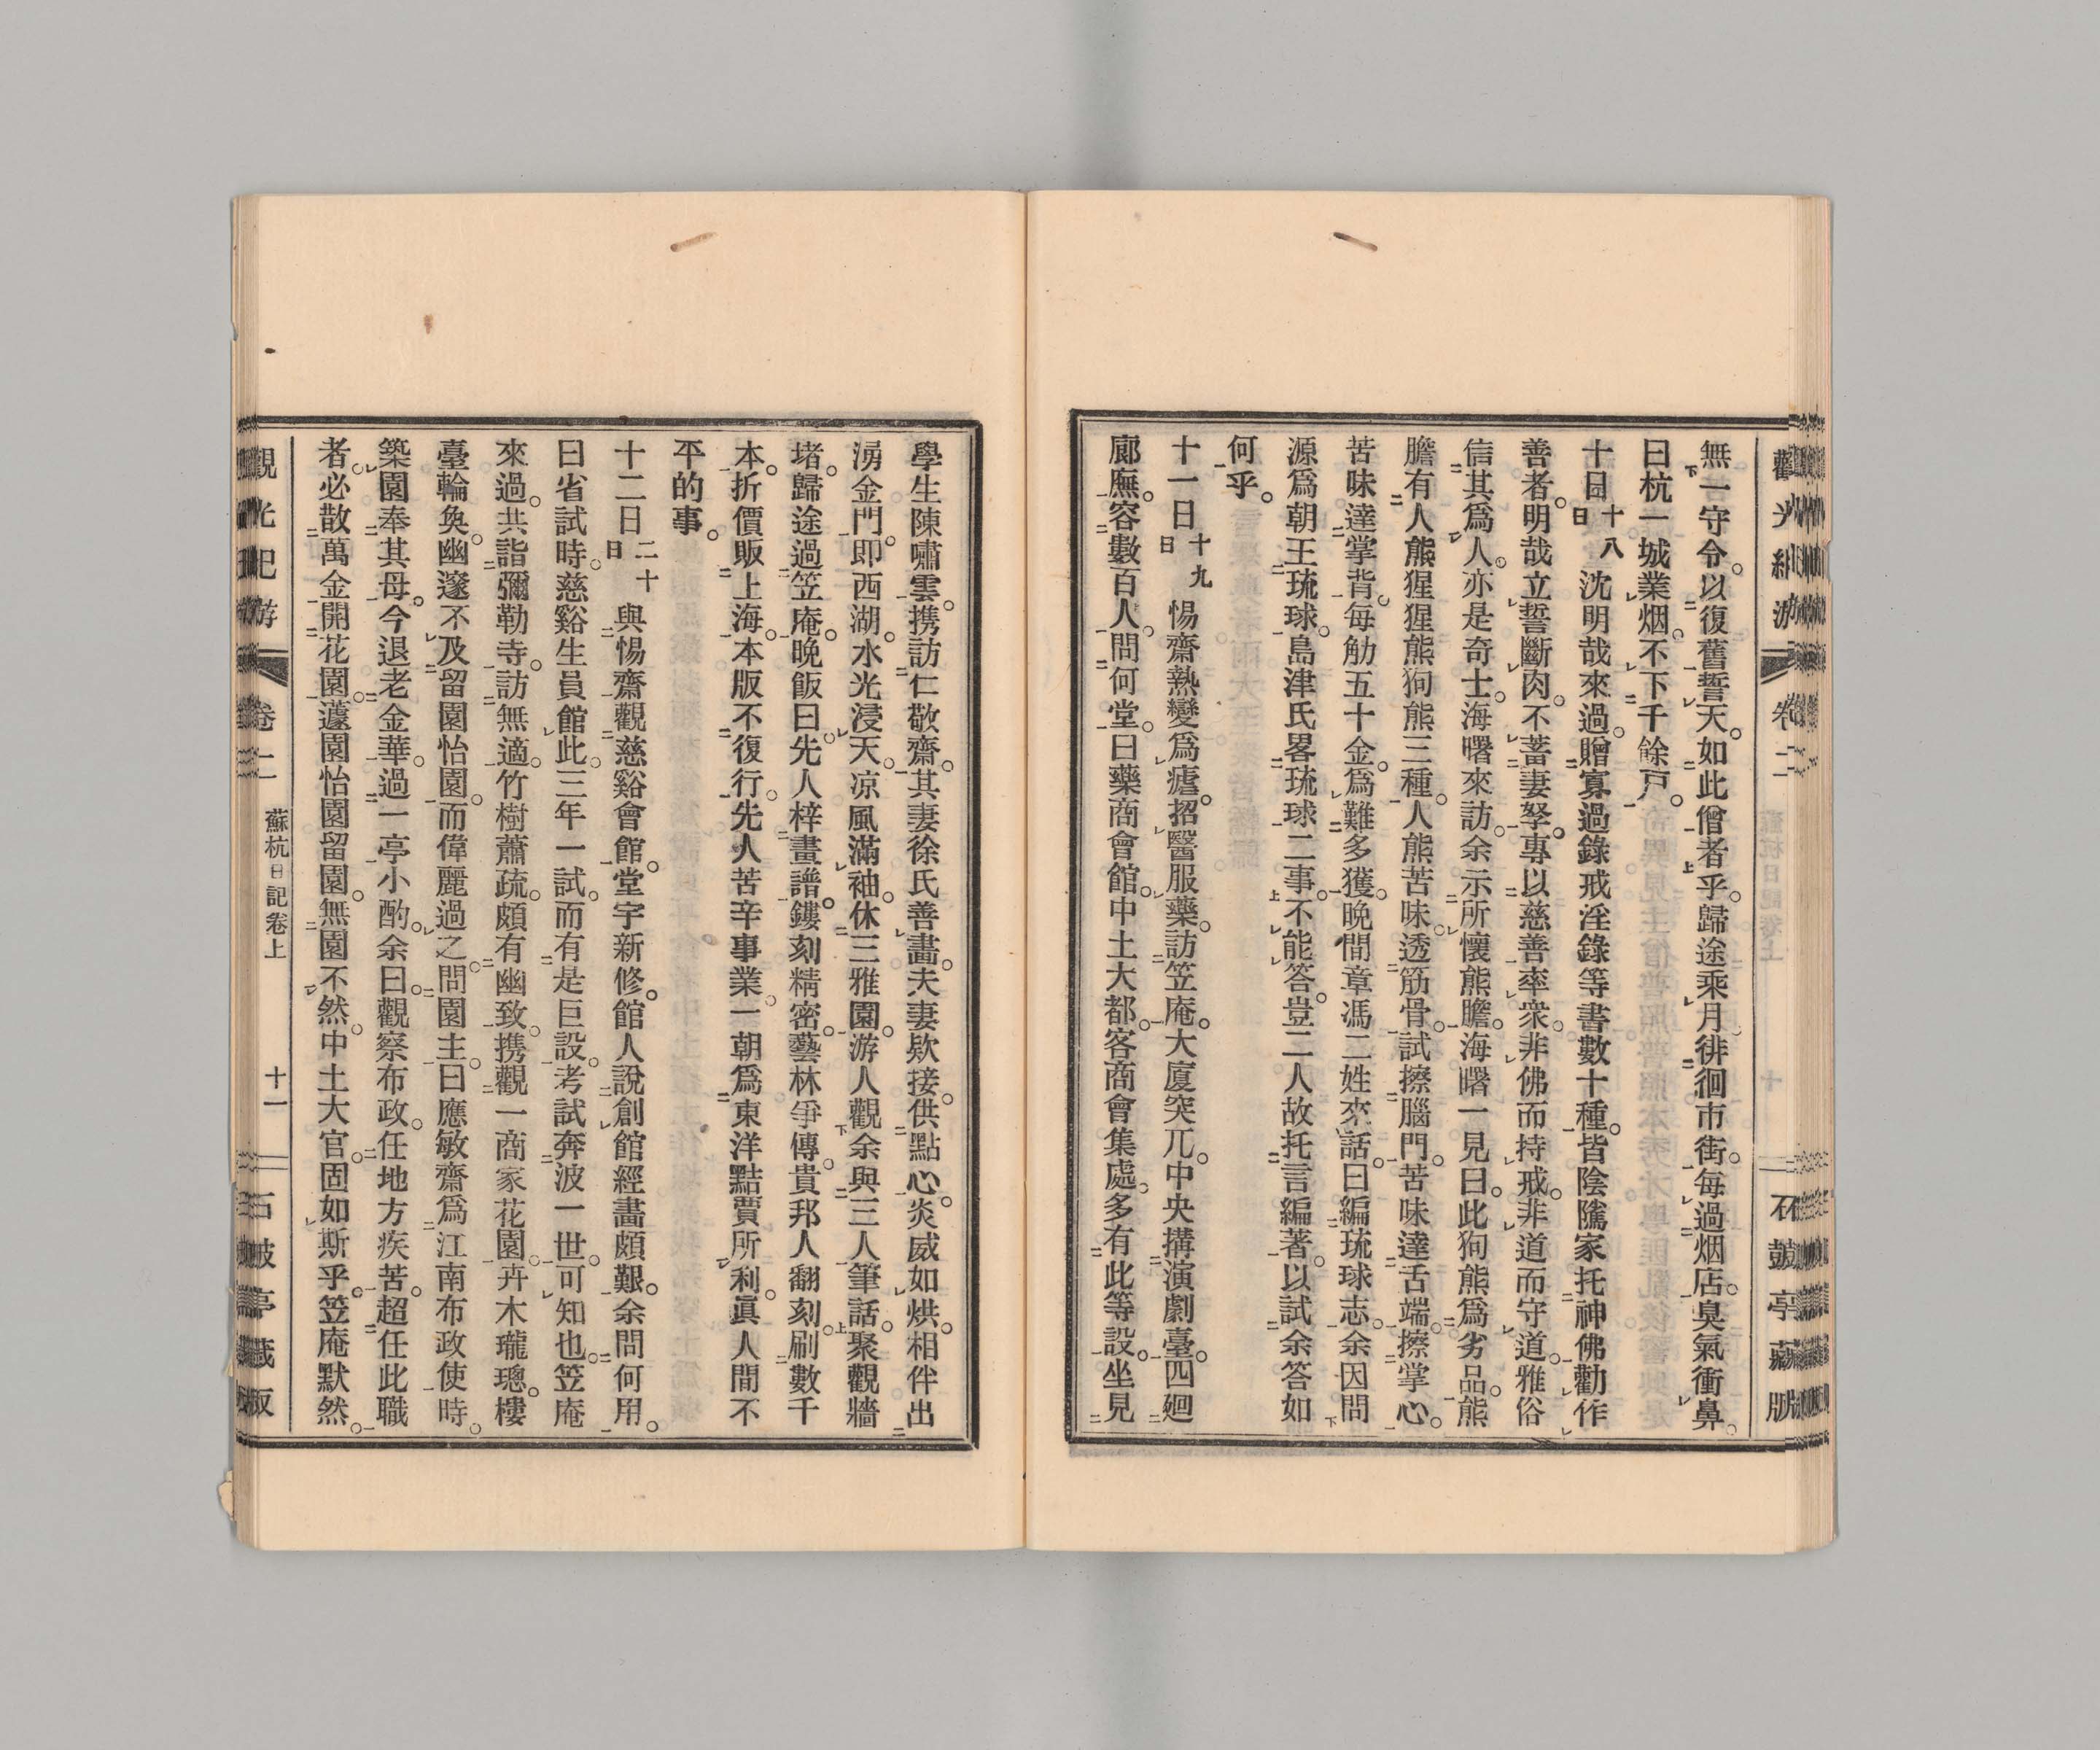 觀光紀游 卷二 石鼓亭藏版
無一守令。以復舊誓天。如此僧者乎。歸途乘月徘徊市街。每過烟店。臭氣衝鼻。
曰杭一城業烟。不下千餘戸。
十日十八日沈明哉來過。贈寡過錄戒淫錄等書數十種。皆陰隲家托神佛勸作
善者。明哉立誓斷肉。不蓄妻孥。專以慈善率衆。非佛而持戒。非道而守道。雅俗
信其爲人。亦是奇士。海曙來訪。余示所懷熊膽。海曙一見曰。此狗熊爲劣品。熊
膽有人熊猩猩熊狗熊三種。人熊苦味。透筋骨。試擦腦門。苦味達舌端。擦掌心。
苦味達掌背。每觔五十金。爲難多獲。晩間章馮二姓來話。曰編琉球志。余因問
源爲朝王琉球。島津氏畧琉球二事。不能答。豈二人故托言編著。以試余答如
何乎。
十一日十九日惕齋熱變爲瘧。招醫服藥。訪笠庵。大廈突兀。中央搆演劇臺。四廻
廊廡。容數百人。問何堂。曰藥商會館。中土大都。客商會集處。多有此等設。坐見
學生陳嘯雲。携訪仁敬齋。其妻徐氏善畵。夫妻欵接。供點心。炎威如烘。相伴出
湧金門。即西湖。水光浸天。凉風滿袖。休三雅園。游人觀余與三人筆話。聚觀牆
堵。歸途過笠庵。晩飯曰。先人梓畫譜。鏤刻精密。藝林爭傳。貴邦人翻刻。刷數千
本。折價販上海。本版不復行。先人苦辛事業。一朝爲東洋黠賈所利。眞人間不
平的事。
十二日二十日與惕齋觀慈谿會館。堂宇新修。館人說創館經畫頗艱。余問何用。
曰省試時。慈谿生員館此。三年一試。而有是巨設。考試奔波一世。可知也。笠庵
來過。共詣彌勒寺。訪無適。竹樹蕭疏。頗有幽致。携觀一商家花園。卉木瓏璁。樓
臺輪奐。幽邃不及留園怡園。而偉麗過之。問園主。曰應敏齋爲江南布政使時。
築園奉其母。今退老金華。過一亭小酌。余曰。觀察布政。任地方疾苦。超任此職
者。必散萬金開花園。蘧園怡園留園。無園不然。中土大官。固如斯乎。笠庵默然。
觀光紀游 卷二 蘇杭日記卷上 十一 石鼓亭藏版